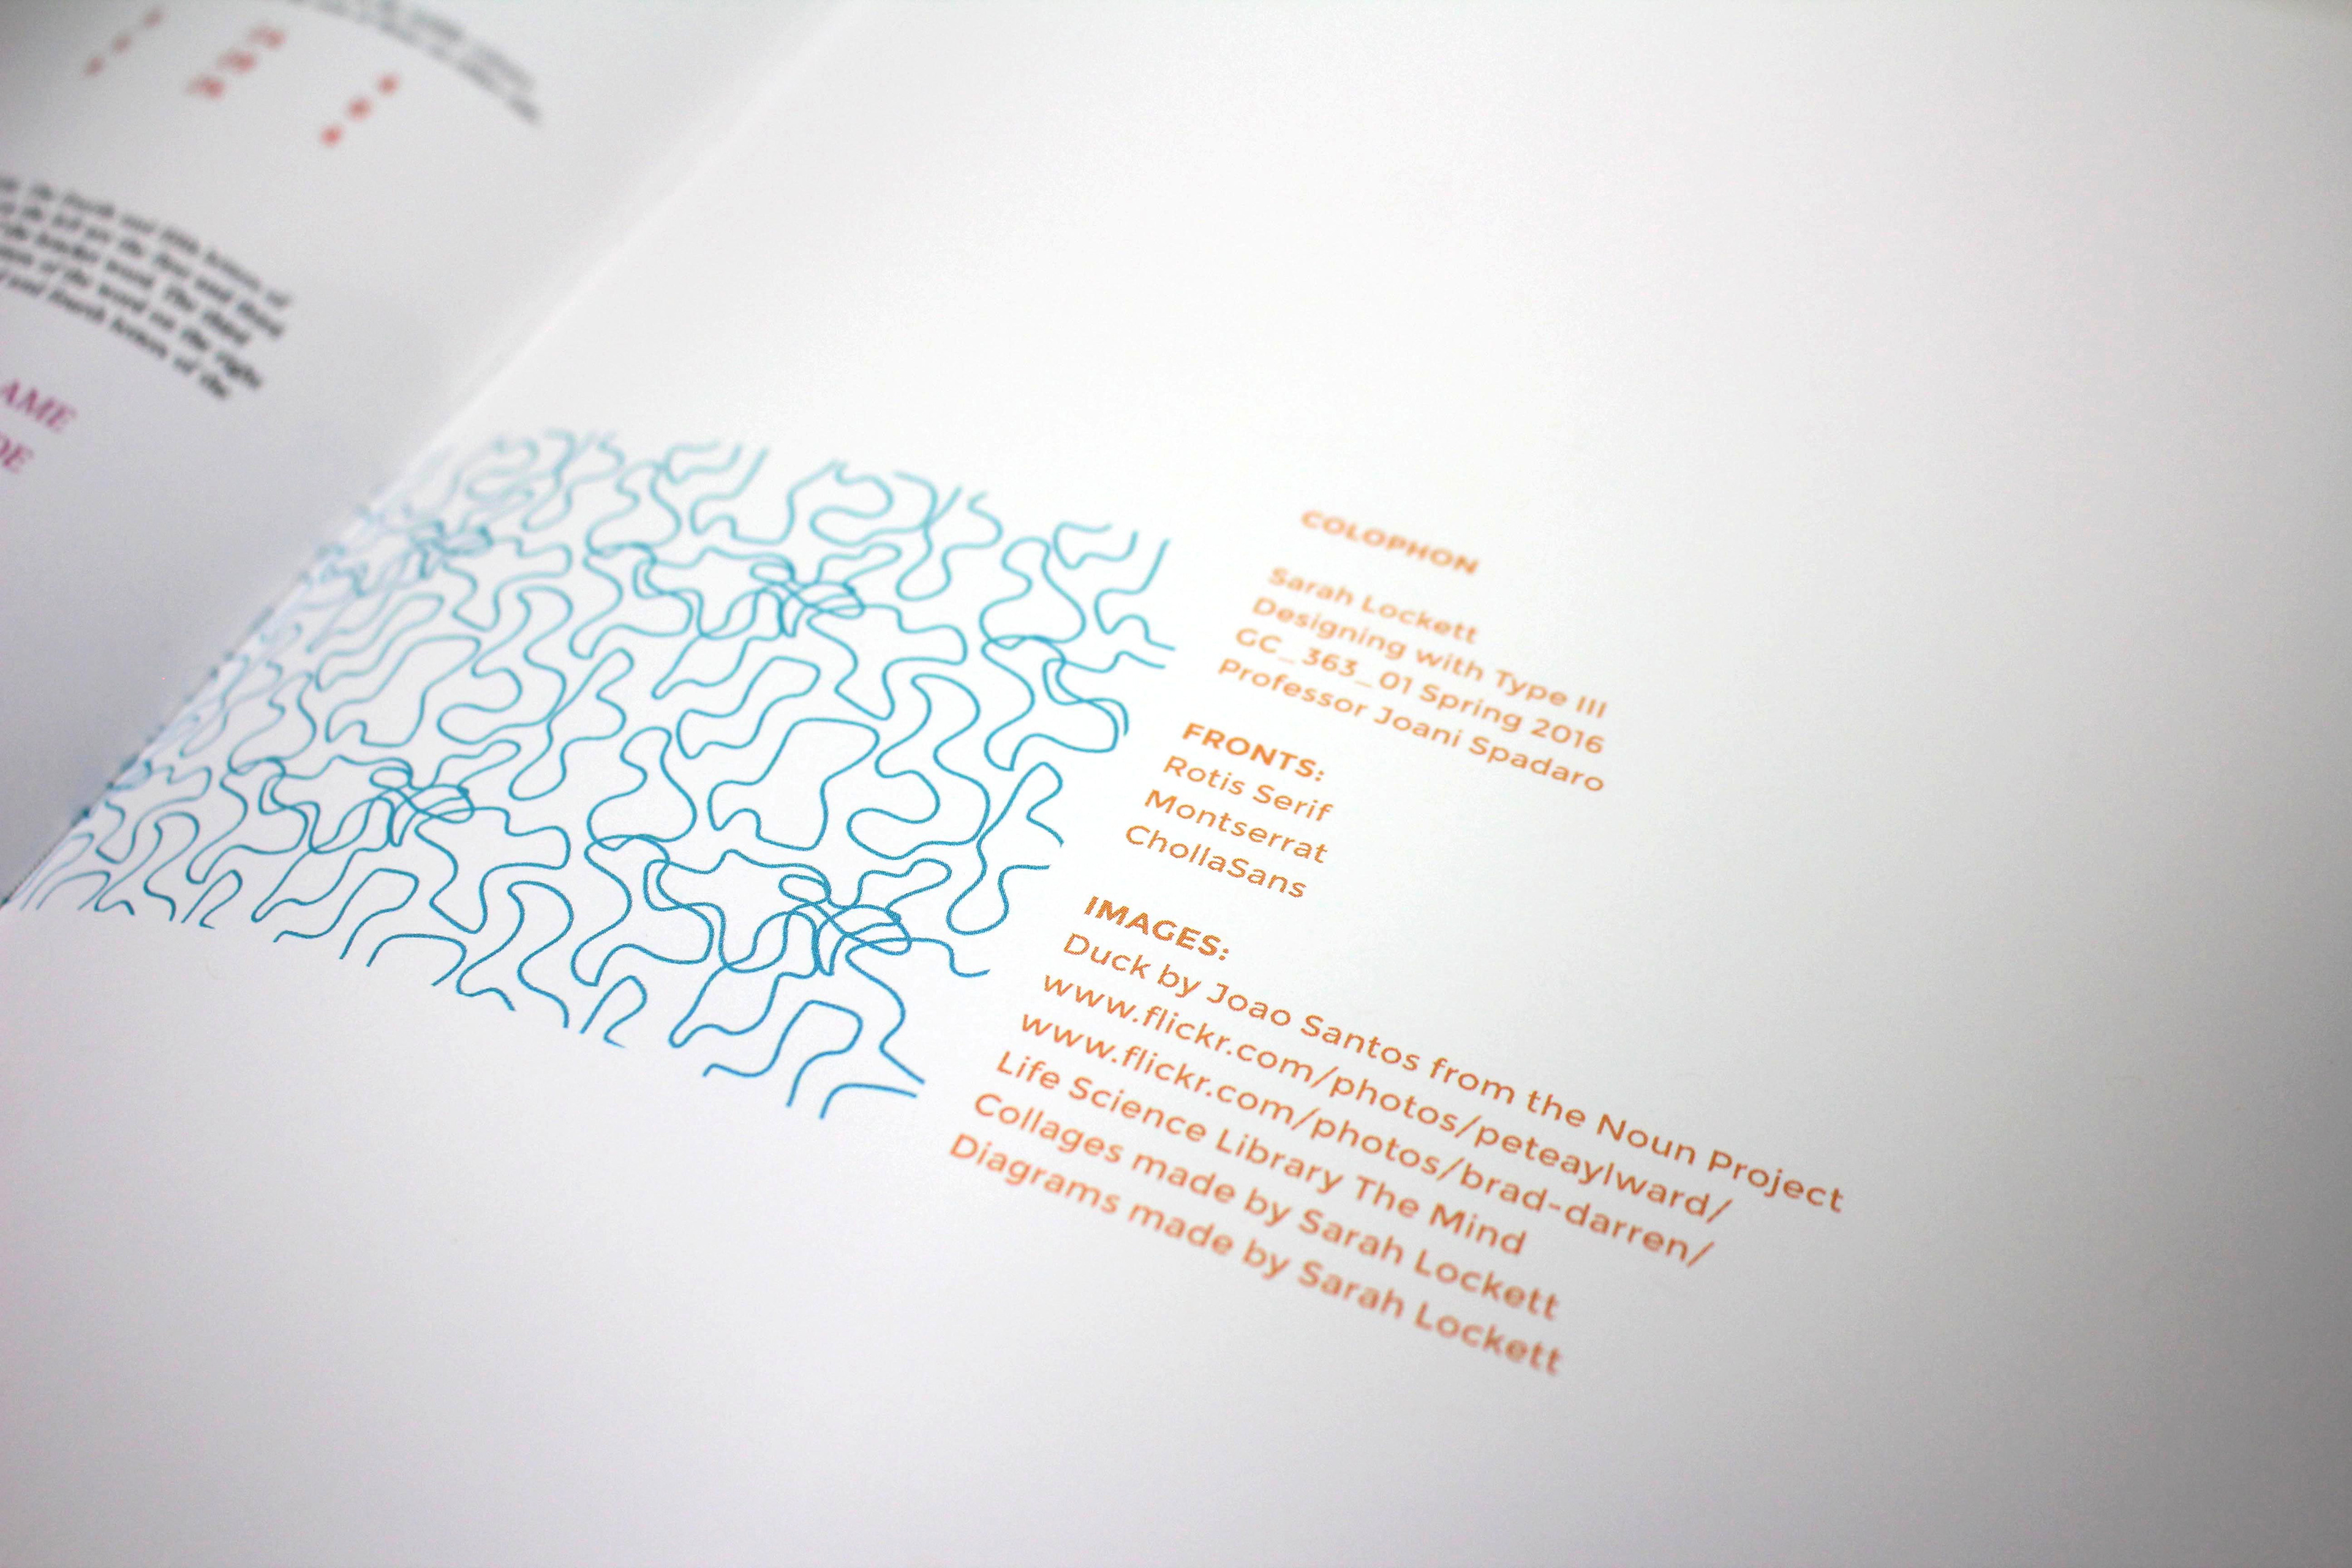 the fourth and fifth letters of
the left are the first and third
the leader word. The third
of the word on the right
and fourth letters of the
AME
DE
COLOPHON
Sarah Lockett
Designing with Type III
GC_363_01 Spring 2016
Professor Joani Spadaro
FRONTS:
Rotis Serif
Montserrat
ChollaSans
IMAGES:
Duck by Joao Santos from the Noun Project
www.flickr.com/photos/peteaylward/
www.flickr.com/photos/brad-darren/
Life Science Library The Mind
Collages made by Sarah Lockett
Diagrams made by Sarah Lockett